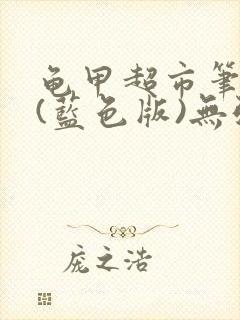 龟甲超市筆
(藍色版)無
庞之浩